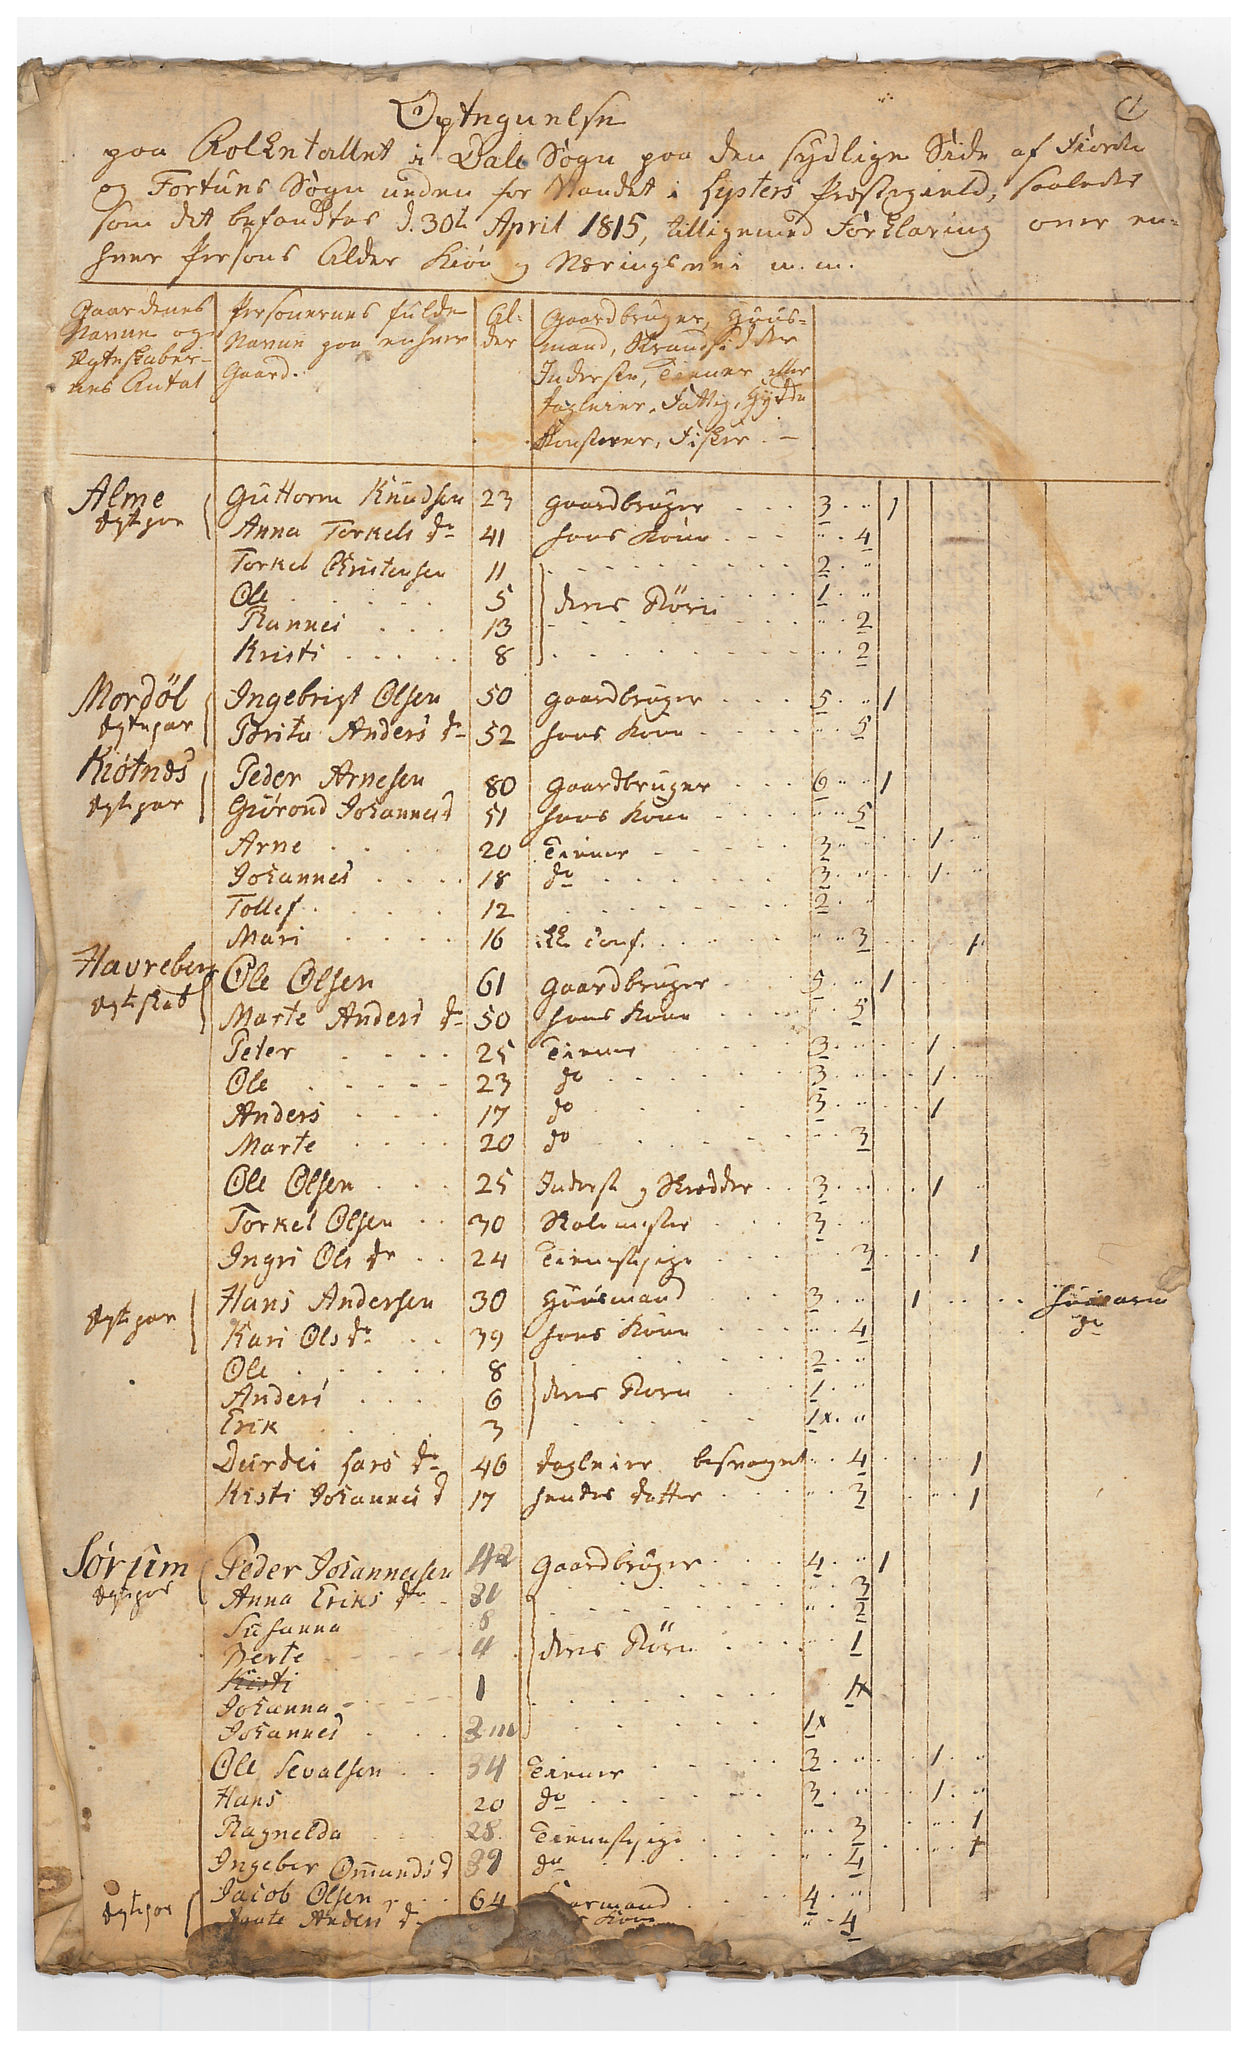 1
Optegnelse
paa Folketallet i Dale Sogn paa den sydlige Side af Fiorden
og Fortuns Sogn neden for Vandet i Lysters Præstegield, saaledes
som det befandtes d. 30te April 1815, tilligemed Forklaring over en-
hver Persons Alder Kiøn og Næringsvei m. m.
Gaardenes Navne og Ægteskaber- nes Antal | Personernes fulde Navne paa enhver Gaard. | Al- der | Gaardbruger, Huus- mand, Strandsidder Inderster, Tiener eller Dagleier, Fattig, Gydde Konstner, Fisker. -
Alme Guttorm Knudsen 23 Gaardbruger 3 " 1
Ægtepar Anna Torkels dr 41 hans Kone " 4
Torkel Christensen 11 2 "
Ole 5 deres Børn 1 "
Rannei 13 " 2
Kristi 8 " 2
Mordøl Ingebrigt Olsen 50 Gaardbruger 5 " 1
Ægtepar Brita Anders dr 52 hans Kone " 5
Kiøtnes Peder Arnesen 80 Gaardbruger 6 " 1
Ægtepar Giørond Johannes d 51 hans Kone " 5
Arne 20 Tiener 3 " 1 "
Johannes 18 do 3 " 1 "
Tollef 12 2 "
Mari 16 conf. " 3 1
Havreberg Ole Olsen 61 Gaardbruger 5 " 1
Ægteskab Marte Anders dr 50 hans Kone " 5
Peter 25 Tiener 3 " 1
Ole 23 do 3 " 1 "
Anders 17 do 3 " 1
Marte 20 do " 3
Ole Olsen 25 Inderst og Skrædder 3 " 1 "
Torkel Olsen 30 Skolemester 3 "
Ingri Ols dr 24 Tienestepige " 3 1
Ægtepar Hans Andersen 30 Huusmand 3 " 1
Kari Ols dr 39 hans Kone " 4 do
Ole 8 2 "
Anders 6 deres Børn 1 "
Erik 3 1x "
Deirdei Lars dr 46 dagleier besvogret " 4 1
Kristi Johannes d 17 hendes datter " 3 1
Sørjim Peder Johannesen 42 Gaardbruger 4 " 1
Ægtepar Anna Eriks dr 31 " 3
Susanna 8 " 2
Berte 4 deres Børn " 1
Kisti 1 1x
Johanna
Johannes 3 m 1x
Ole Sevalsen 34 Tiener 3 " 1 "
Hans 20 do 3 " 1 "
Ragnelda 28 Tienestepige " 3 1
Ingeber Omunds d 39 do " 4 1
Ægtepar Jacob Olsen 64 4 "
Anders dr Kone " 4